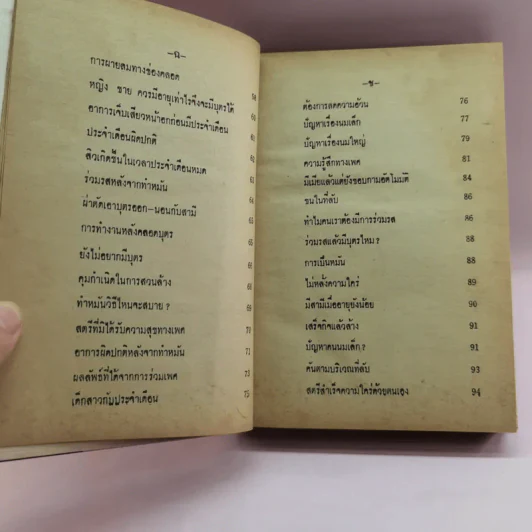 –ฉ–
การผายลมทางช่องคลอด
หญิง ชาย ควรมีอายุเท่าไรจึงจะมีบุตรได้ 59
อาการเจ็บเสียวหน้าอกก่อนมีประจำเดือน 60
ประจำเดือนผิดปกติ 61
สิวเกิดขึ้นในเวลาประจำเดือนหมด 62
ร่วมรสหลังจากทำหมัน
ผ่าตัดเอาบุตรออก–นอนกับสามี
การทำงานหลังคลอดบุตร 65
ยังไม่อยากมีบุตร
คุมกำเนิดในการสวนล้าง
ทำหมันวิธีไหนจะสบาย ?
สตรีที่มิได้รับความสุขทางเพศ
อาการผิดปกติหลังจากทำหมัน 71
ผลลัพธ์ที่ได้จากการร่วมเพศ
เด็กสาวกับประจำเดือน 75
–ช–
ต้องการลดความอ้วน 76
ปัญหาเรื่องนมเล็ก 77
ปัญหาเรื่องนมใหญ่ 79
ความรู้สึกทางเพศ 81
มีเมียแล้วแต่ยังชอบกามอัตโนมัติ 84
ขนในที่ลับ 86
ทำไมคนเราต้องมีการร่วมรส 86
ร่วมรสแล้วมีบุตรไหม ? 88
การเป็นหมัน 88
ไม่หลั่งความใคร่ 89
มีสามีเมื่ออายุยังน้อย 90
เสร็จกิจแล้วล้าง 91
ปัญหาคนนมเล็ก ? 91
คันตามบริเวณที่ลับ 93
สตรีสำเร็จความใคร่ด้วยตนเอง 94